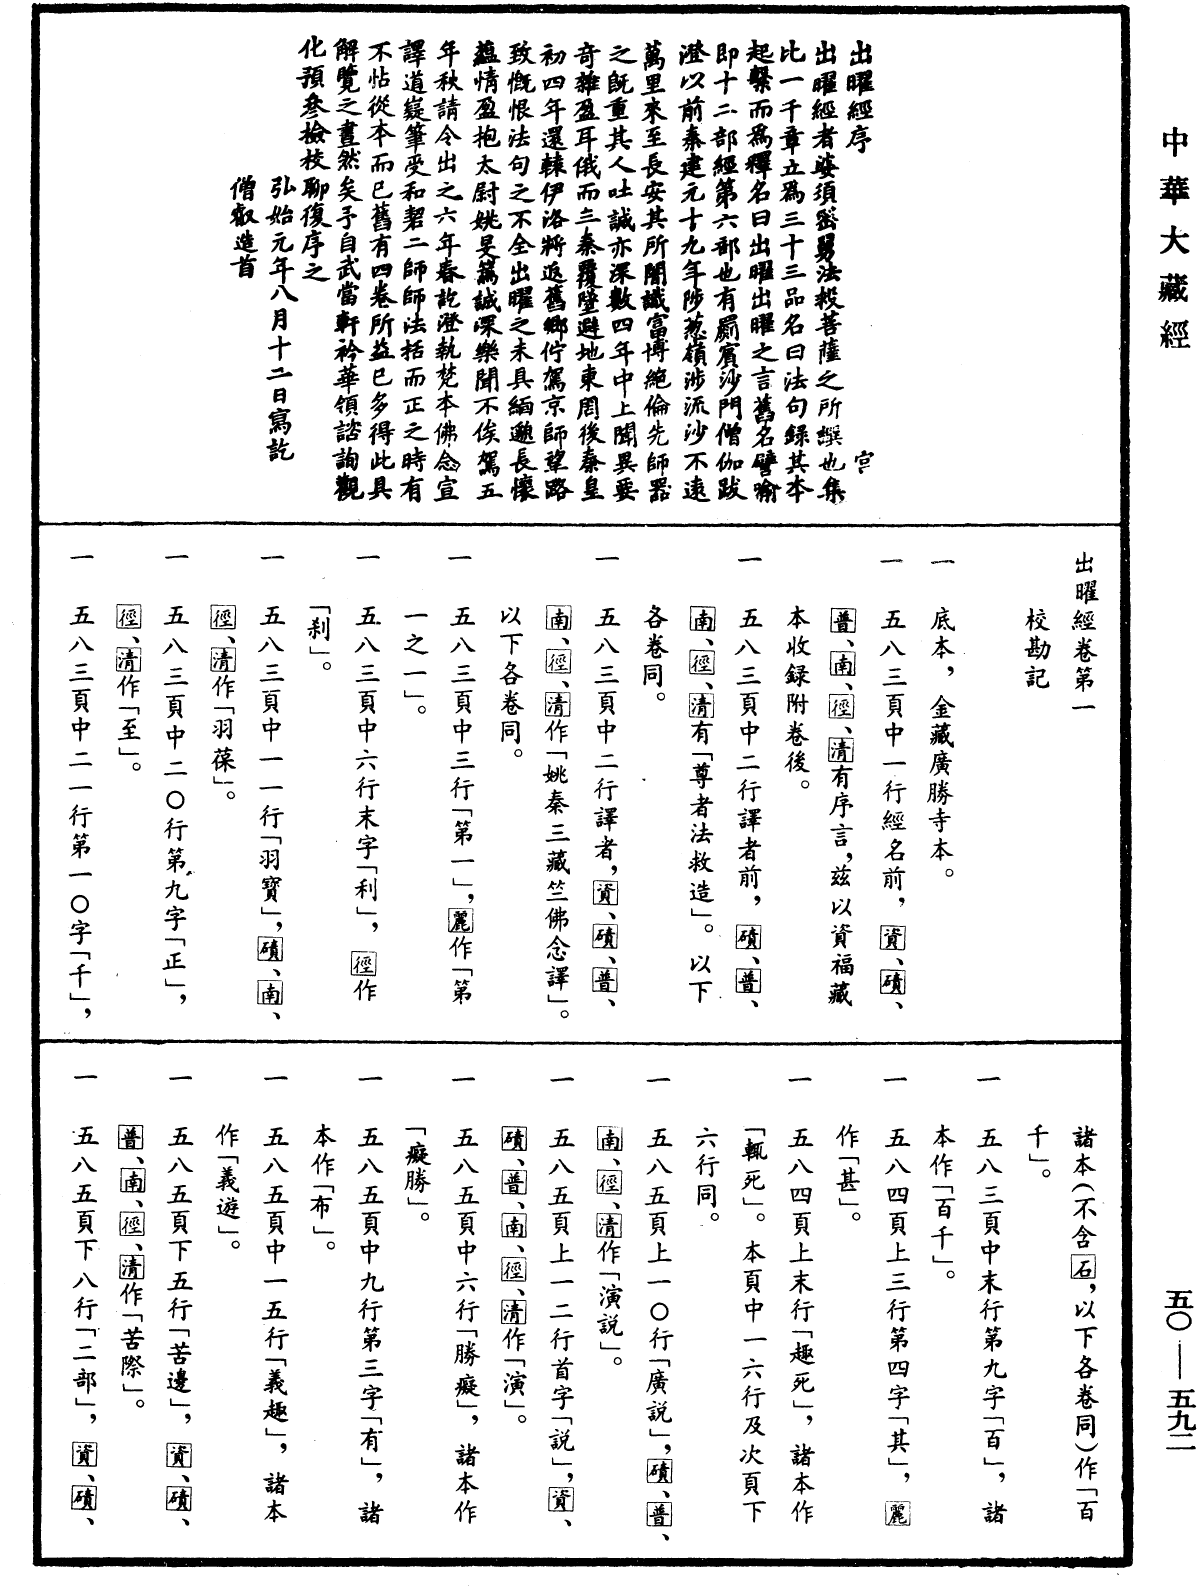 中華大藏經
出曜經序 宫
出曜經者婆須蜜舅法救菩薩之所撰也集
比一千章立爲三十三品名曰法句録其本
起繫而爲釋名曰出曜出曜之言舊名譬喻
即十二部經第六部也有罽賓沙門僧伽跋
澄以前秦建元十九年陟葱嶺涉流沙不遠
萬里來至長安其所闇識富博絶倫先師器
之既重其人吐誠亦深數四年中上聞異要
奇雜盈耳俄而三秦覆墜避地東周後秦皇
初四年還轅伊洛將返舊鄉佇駕京師望路
致慨恨法句之不全出曜之未具緬邈長懷
蘊情盈抱太尉姚旻篤誠深樂聞不俟駕五
年秋請令出之六年春訖澄執梵本佛念宣
譯道嶷筆受和䂮二師師法括而正之時有
不怙從本而已舊有四卷所益已多得此具
解覽之晝然矣予自武當軒衿華領諮詢觀
化預參檢校聊復序之
弘始元年八月十二日寫訖
僧叡造首
出曜經卷第一
校勘記
一 底本，金藏廣勝寺本。
一 五八三頁中一行經名前，資、磧、
普、南、徑、清有序言，兹以資福藏
本收録附卷後。
一 五八三頁中二行譯者前，磧、普、
南、徑、清有「尊者法救造」。以下
各卷同。
一 五八三頁中二行譯者，資、磧、普、
南、徑、清作「姚秦三藏竺佛念譯」。
以下各卷同。
一 五八三頁中三行「第一」，麗作「第
一之一」。
一 五八三頁中六行末字「利」，徑作
「刹」。
一 五八三頁中一一行「羽寳」，磧、南、
徑、清作「羽葆」。
一 五八三頁中二〇行第九字「正」，
徑、清作「至」。
一 五八三頁中二一行第一〇字「千」，
諸本（不含石，以下各卷同）作「百
千」。
一 五八三頁中末行第九字「百」，諸
本作「百千」。
一 五八四頁上三行第四字「其」，麗
作「甚」。
一 五八四頁上末行「趣死」，諸本作
「輒死」。本頁中一六行及次頁下
六行同。
一 五八五頁上一〇行「廣説」，磧、普、
南、徑、清作「演説」。
一 五八五頁上一二行首字「説」，資、
磧、普、南、徑、清作「演」。
一 五八五頁中六行「勝癡」，諸本作
「癡勝」。
一 五八五頁中九行第三字「有」，諸
本作「布」。
一 五八五頁中一五行「義趣」，諸本
作「義遊」。
一 五八五頁下五行「苦邊」，資、磧、
普、南、徑、清作「苦際」。
一 五八五頁下八行「二部」，資、磧、
五〇——五九二